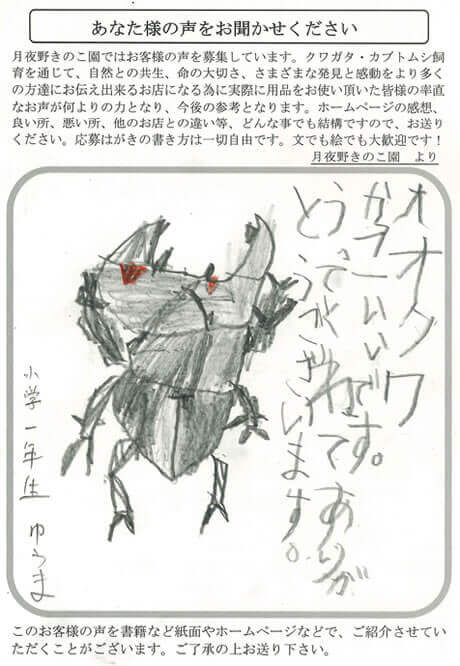 あなた様の声をお聞かせください
月夜野きのこ園ではお客様の声を募集しています。クワガタ・カブトムシ飼
育を通じて、自然との共生、命の大切さ、さまざまな発見と感動をより多く
の方達にお伝え出来るお店になる為に実際に用品をお使い頂いた皆様の率直
なお声が何よりの力となり、今後の参考となります。ホームページの感想、
良い所、悪い所、他のお店との違い等、どんな事でも結構ですので、お送り
ください。応募はがきの書き方は一切自由です。文でも絵でも大歓迎です！
月夜野きのこ園　より
オオクワ
かっこいいです。
とうございます。
小学一年生 ゆうま
このお客様の声を書籍など紙面やホームページなどで、ご紹介させてい
ただくことがございます。ご了承の上お送り下さい。